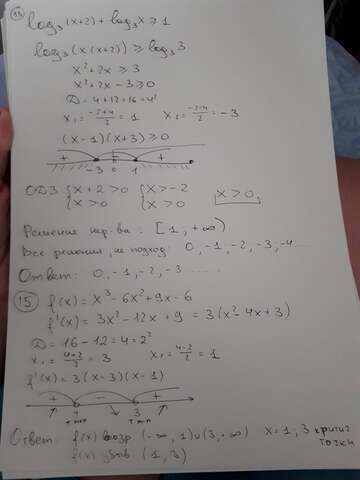 14
log₃(x+2) + log₃x ≥ 1
log₃(x(x+2)) ≥ log₃3
x² + 2x ≥ 3
x² + 2x - 3 ≥ 0
D = 4 + 12 = 16 = 4²
x₁ = (-2+4)/2 = 1    x₂ = (-2-4)/2 = -3
(x-1)(x+3) ≥ 0
+ - +
-3 0 1
ОДЗ { x+2>0 { x>-2 x>0,
x>0 x>0
Решение нер-ва: [1; +∞)
Все решения, не подход: 0, -1, -2, -3, -4...
Ответ: 0, -1, -2, -3 .....
15 f(x) = x³ - 6x² + 9x - 6
f'(x) = 3x² - 12x + 9 = 3(x² - 4x + 3)
D = 16 - 12 = 4 = 2²
x₁ = (4+2)/2 = 3    x₂ = (4-2)/2 = 1
f'(x) = 3(x-3)(x-1)
+ - +
1 3
т max т min
Ответ: f(x) возр (-∞, 1)∪(3, +∞) x = 1, 3 критич
точки
f(x) убыв (1, 3)